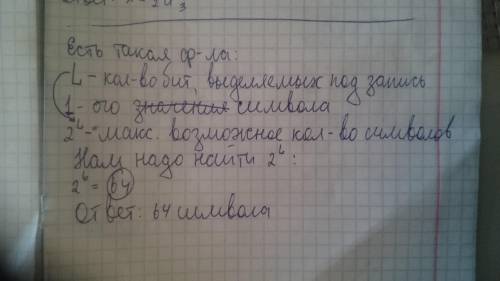 Есть такая ф-ла:
L - кол-во бит, выделяемых под запись
1 - ого значения символа
2ᴸ - макс. возможное кол-во символов
Нам надо найти 2ᴸ:
2⁶ = 64
Ответ: 64 символа